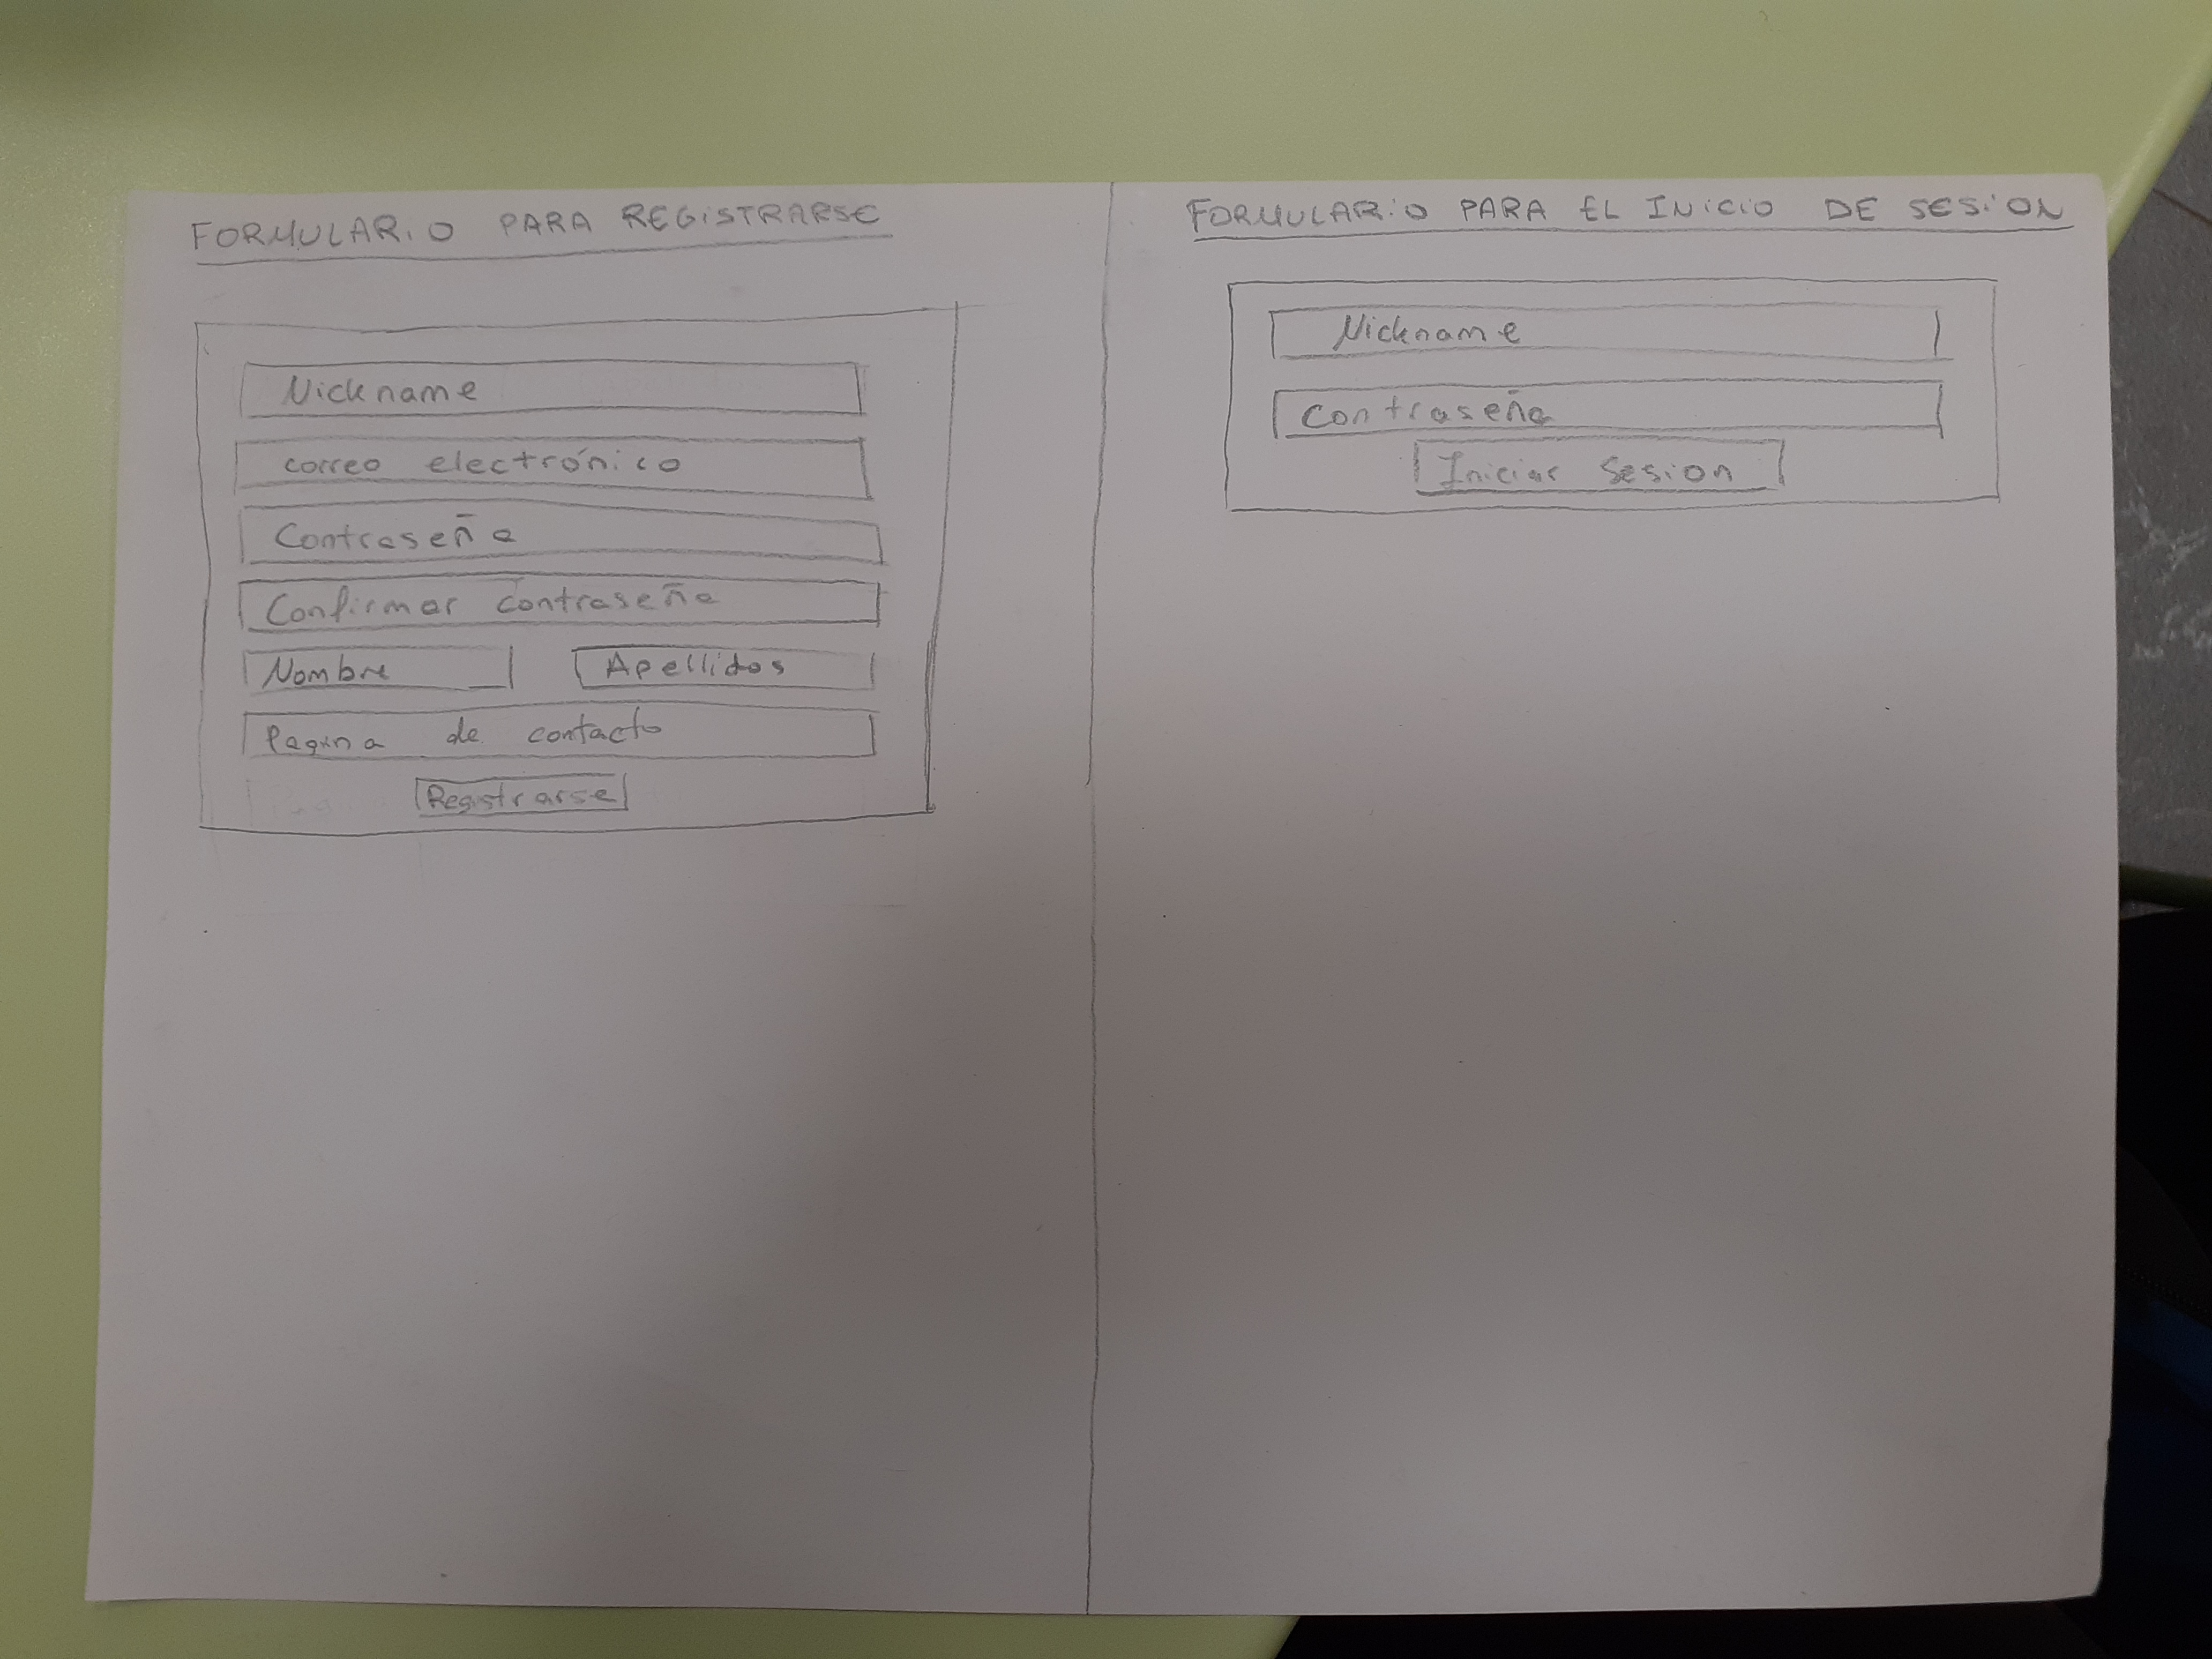 FORMULARiO PARA REGiSTRARSE
Nickname
correo electrónico
Contraseña
Confirmar contraseña
Nombre Apellidos
Pagina de contacto
Registrarse
FORMULARiO PARA EL INiCiO DE SESiON
Nickname
Contraseña
Iniciar Sesion